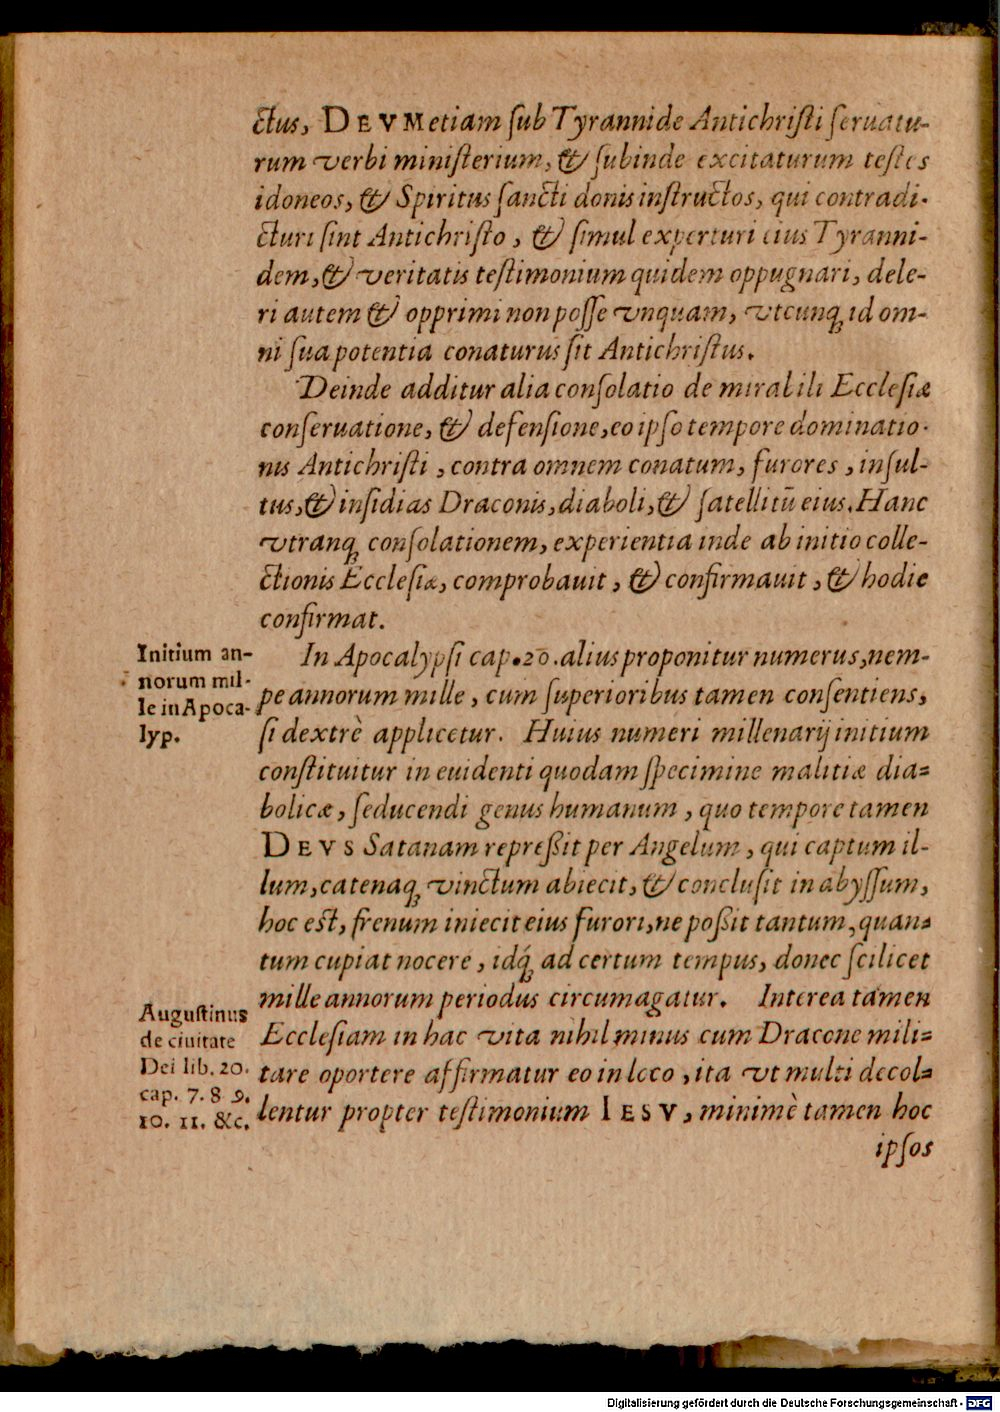 ctus, DEVM etiam ſub Tyrannide Antichriſti ſeruatu-
rum verbi miniſterium, & ſubinde excitaturum teſtes
idoneos, & Spiritus ſancti donis inſtructos, qui contradi-
cturi ſint Antichriſto, & ſimul experturi eius Tyranni-
dem, & veritatis teſtimonium quidem oppugnari, dele-
ri autem & opprimi non poſſe vnquam, vtcunq; id om-
ni ſua potentia conaturus ſit Antichriſtus.
Deinde additur alia conſolatio de mirabili Eccleſiæ
conſeruatione, & defenſione, eo ipſo tempore dominatio-
nis Antichriſti, contra omnem conatum, furores, inſul-
tus, & inſidias Draconis, diaboli, & ſatellitū eius. Hanc
vtranq; conſolationem, experientia inde ab initio colle-
ctionis Eccleſiæ, comprobauit, & confirmauit, & hodie
confirmat.
Initium an-
norum mil-
le in Apoca-
lyp.
In Apocalypſi cap. 20. alius proponitur numerus, nem-
pe annorum mille, cum ſuperioribus tamen conſentiens,
ſi dextrè applicetur. Huius numeri millenarij initium
conſtituitur in euidenti quodam ſpecimine malitiæ dia-
bolicæ, ſeducendi genus humanum, quo tempore tamen
DEVS Satanam repreßit per Angelum, qui captum il-
lum, catenaq; vinctum abiecit, & concluſit in abyſſum,
hoc eſt, frenum iniecit eius furori, ne poßit tantum, quan-
tum cupiat nocere, idq́; ad certum tempus, donec ſcilicet
mille annorum periodus circumagatur. Interea tamen
Auguſtinus
de ciuitate
Dei lib. 20.
cap. 7. 8 9.
10. 11. &c.
Eccleſiam in hac vita nihil minus cum Dracone mili-
tare oportere affirmatur eo in loco, ita vt multi decol-
lentur propter teſtimonium IESV, minimè tamen hoc
ipſos
Digitalisierung gefördert durch die Deutsche Forschungsgemeinschaft - DFG